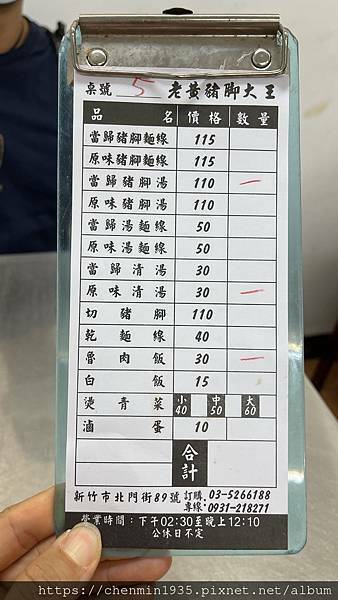 桌號 5 老黃豬腳大王
品名 價格 數量
當歸豬腳麵線 115
原味豬腳麵線 115
當歸豬腳湯 110 一
原味豬腳湯 110
當歸湯麵線 50
原味湯麵線 50
當歸清湯 30
原味清湯 30 一
切豬腳 110
乾麵線 40
魯肉飯 30 一
白飯 15
燙青菜 小40 中50 大60
滷蛋 10
合計
新竹市北門街89號 訂購專線 03-5266188 0931-218271
營業時間：下午02:30至晚上12:10
公休日不定
https://chenmin1935.pixnet.net/album